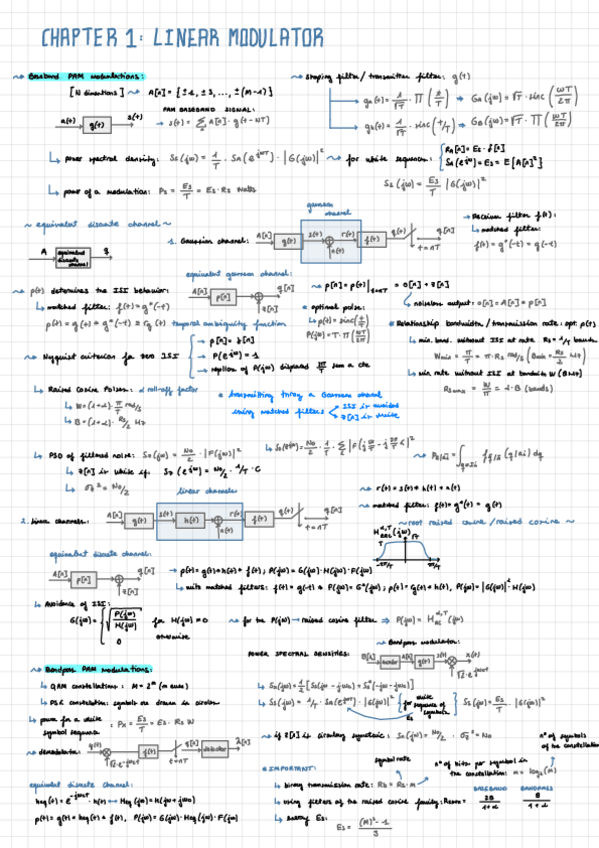 CHAPTER 1: LINEAR MODULATOR
~ Baseband PAM modulations:
[N dimentions] ~> A[n] = {±1, ±3, ..., ±(M-1)}
PAM BASEBAND SIGNAL:
a(t) g(t) s(t) → s(t) = Σ A[n] · g(t-nT)
↳ power spectral density: Ss(jω) = 1/T · SA(e^jωT) · |G(jω)|²
~> for white sequence: RA[n] = Es · δ[n]
SA(e^jω) = Es = E[A[n]²]
Ss(jω) = Es/T |G(jω)|²
↳ power of a modulation: Ps = Es/T = Es · Rs Watts
~> shaping filter / transmitter filter: g(t)
ga(t) = 1/√T · Π(t/T) → Ga(jω) = √T · sinc(ωT/2π)
gb(t) = 1/√T · sinc(t/T) → Gb(jω) = √T · Π(ωT/2π)
~ equivalent discrete channel ~
A equivalent discrete channel q
gaussian channel
1. Gaussian channel: A[n] g(t) s(t) n(t) r(t) f(t) q(t) t=nT q[n]
→ Receiver filter f(t):
↳ matched filter:
f(t) = g*(-t) = g(-t)
equivalent gaussian channel:
A[n] p[n] z[n] q[n]
~> p[n] = p(t)|t=nT = o[n] + z[n]
↳ noiseless output: o[n] = A[n] * p[n]
~> p(t) determines the ISI behavior:
↳ matched filter: f(t) = g*(-t)
p(t) = g(t) * g*(-t) = rg(t) temporal ambiguity function
* optimal pulse:
↳ p(t) = sinc(t/T)
P(jω) = T · Π(ωT/2π)
* Relationship bandwidth / transmission rate: opt p(t)
↳ min. band. without ISI at rate Rs = 1/T bauds
Wmin = π/T = π · Rs rad/s (Bmin = Rs/2 Hz)
↳ min rate without ISI at bandwidth W (B Hz)
Rsmax = W/π = 2 · B (bauds)
~> Nyquist criterion for zero ISI
→ p[n] = δ[n]
→ P(e^jω) = 1
→ replicas of P(jω) displaced 2π/T sum a cte
↳ Raised Cosine Pulses: α roll-off factor
↳ W = (1+α) · π/T rad/s
↳ B = (1+α) · Rs/2 Hz
* transmitting through a Gaussian channel
using matched filters → ISI is avoided
→ z[n] is white
↳ PSD of filtered noise: Sz(jω) = N0/2 · |F(jω)|²
↳ z[n] is white if: Sz(e^jω) = N0/2 · 1/T · C
↳ σz² = N0/2
~> r(t) = s(t) * h(t) + n(t)
~> matched filter: f(t) = g*(t) = g(t)
~ root raised cosine / raised cosine ~
linear channels
2. linear channels: A[n] g(t) s(t) h(t) n(t) r(t) f(t) q(t) t=nT q[n]
equivalent discrete channel:
A[n] p[n] z[n] q[n]
→ p(t) = g(t) * h(t) * f(t); P(jω) = G(jω) · H(jω) · F(jω)
↳ with matched filters: f(t) = g(-t) → F(jω) = G*(jω); p(t) = rg(t) * h(t), P(jω) = |G(jω)|² · H(jω)
↳ Avoidance of ISI:
G(jω) = √(P(jω)/H(jω)) for H(jω) ≠ 0
0 otherwise
~> for the P(jω) → raised cosine filter → P(jω) = H RC α,T (jω)
~ Bandpass PAM modulations:
↳ QAM constellations: M = 2^m (m even)
↳ PSK constellation: symbols are drawn in circles
↳ power for a white symbol sequence: Px = Es/T = Es · Rs W
POWER SPECTRAL DENSITIES:
~> Bandpass modulator:
B[n] encoder A[n] g(t) s(t) √2·e^jωct x(t)
↳ Sx(jω) = 1/2 [Ss(jω - jωc) + Ss*(-jω - jωc)]
↳ Ss(jω) = 1/T · SA(e^jωT) · |G(jω)|²
white sequence of symbols Es
Ss(jω) = Es/T · |G(jω)|²
~> demodulator: q(t) √2·e^-jωct f(t) t=nT q[n] detector
~> if z[n] is circularly symmetric: Sz(jω) = N0/2 · σz² = N0
equivalent discrete channel:
heq(t) = e^-jωct · h(t) → Heq(jω) = H(jω + jωc)
p(t) = g(t) * heq(t) * f(t), P(jω) = G(jω) · Heq(jω) · F(jω)
* IMPORTANT:
symbol rate
nº of bits per symbol in the constellation: m = log2(M)
nº of symbols of the constellation
↳ binary transmission rate: Rb = Rs · m
↳ using filters of the raised cosine family: Rsmax =
BASEBAND 2B/1+α
BANDPASS B/1+α
↳ energy Es:
Es = (M)²-1/3